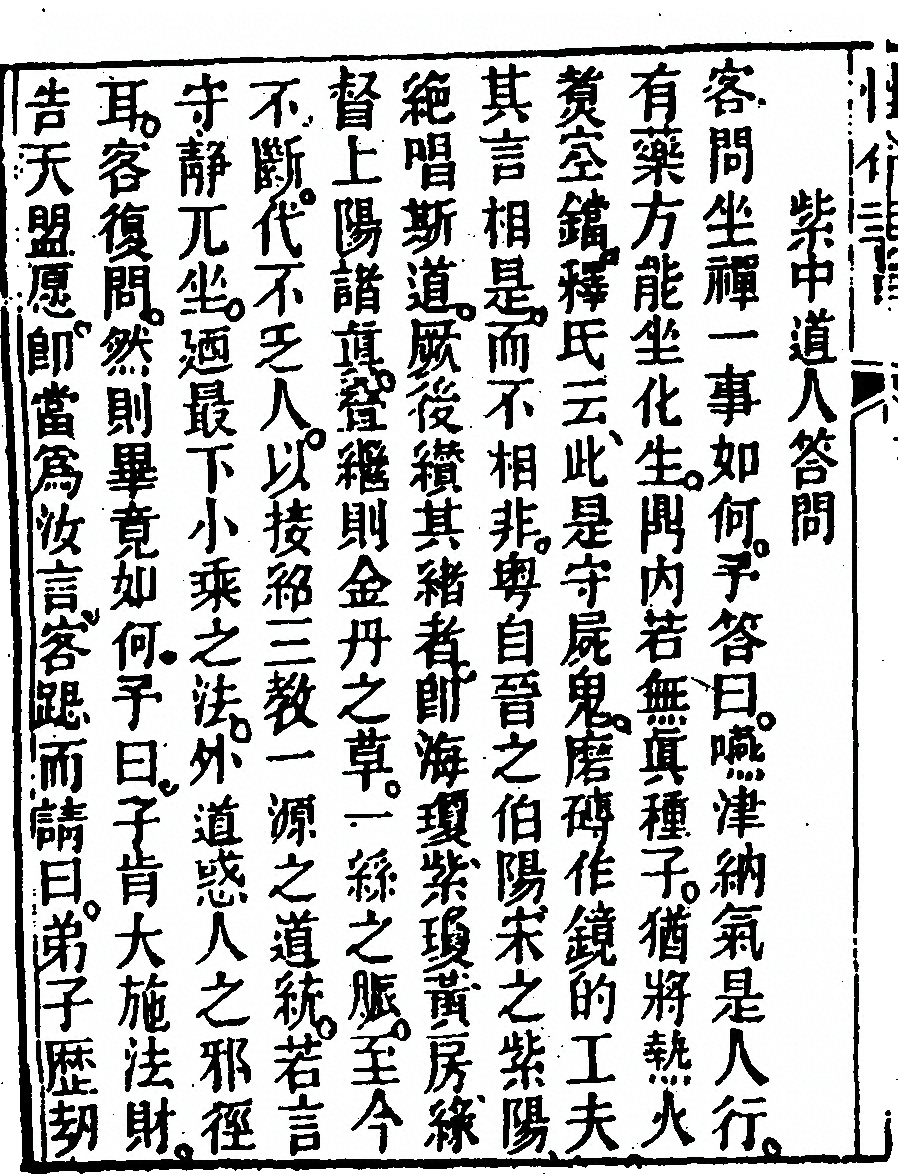 紫中道人答問
客問坐禪一事如何予答曰嚥津納氣是人行
有藥方能坐化生鼎内若無眞種子猶將熱火
煑空鐺釋氏云此是守屍鬼磨磚作鏡的工夫
其言相是而不相非粤自晉之伯陽宋之紫陽
絶唱斯道厥後纘其緒者卽海瓊紫瓊黃房緣
督上陽諸眞登繼則金丹之草一絲之脈至今
不斷代不乏人以接紹三教一源之道統若言
守靜兀坐廼最下小乘之法外道惑人之邪徑
耳客復問然則畢竟如何予曰子肯大施法財
告天盟愿卽當爲汝言客跽而請曰弟子歷劫